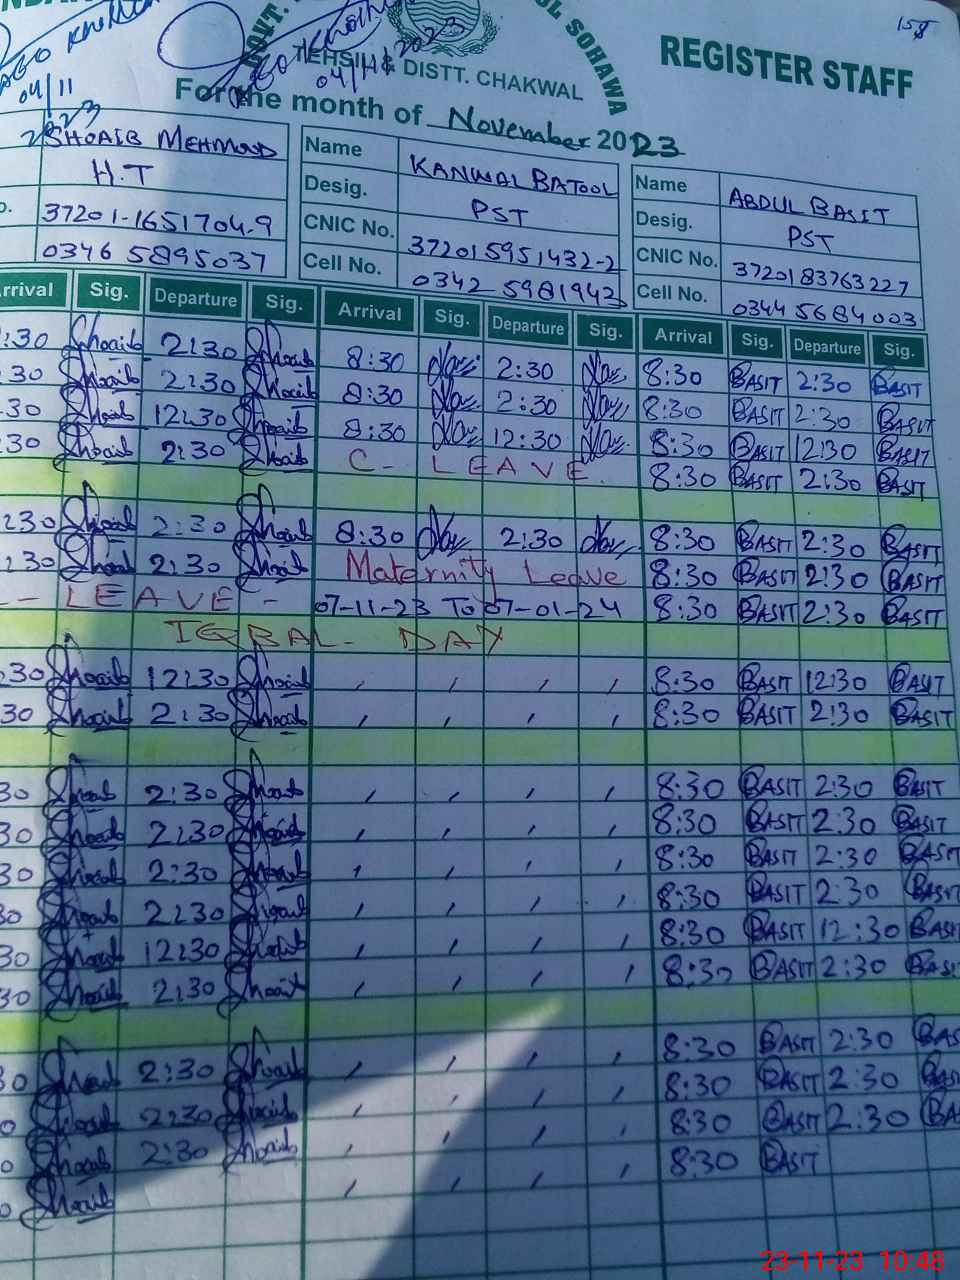 158
GOVT. SOHAWA
TEHSIL & DISTT. CHAKWAL
REGISTER STAFF
04/11
2023
04/11/2023
For the month of November 2023
SHOAIB MEHMUD
H.T
37201-1651704-9
0346 5895037
Name KANWAL BATOOL
Desig. PST
CNIC No. 372015951432-2
Cell No. 0342 5981943
Name ABDUL BASIT
Desig. PST
CNIC No. 3720183763227
Cell No. 0344 5684003
Arrival Sig. Departure Sig. Arrival Sig. Departure Sig. Arrival Sig. Departure Sig.
:30 Shoaib 2:30 Shoaib 8:30 2:30 8:30 BASIT 2:30 BASIT
:30 Shoaib 2:30 Shoaib 8:30 2:30 8:30 BASIT 2:30 BASIT
:30 Shoaib 12:30 Shoaib 8:30 12:30 8:30 BASIT 12:30 BASIT
:30 Shoaib 2:30 Shoaib C- LEAVE 8:30 BASIT 2:30 BASIT
:30 Shoaib 2:30 Shoaib 8:30 2:30 8:30 BASIT 2:30 BASIT
:30 Shoaib 2:30 Shoaib Maternity Leave 8:30 BASIT 2:30 BASIT
- LEAVE - 07-11-23 To 07-01-24 8:30 BASIT 2:30 BASIT
IQBAL DAY
:30 Shoaib 12:30 Shoaib , , , , 8:30 BASIT 12:30 BASIT
30 Shoaib 2:30 Shoaib , , , , 8:30 BASIT 2:30 BASIT
30 Shoaib 2:30 Shoaib , , , , 8:30 BASIT 2:30 BASIT
30 Shoaib 2:30 Shoaib , , , , 8:30 BASIT 2:30 BASIT
30 Shoaib 2:30 Shoaib , , , , 8:30 BASIT 2:30 BASIT
30 Shoaib 2:30 Shoaib , , , , 8:30 BASIT 2:30 BASIT
30 Shoaib 12:30 Shoaib , , , , 8:30 BASIT 12:30 BASIT
30 Shoaib 2:30 Shoaib , , , , 8:30 BASIT 2:30 BASI
30 Shoaib 2:30 Shoaib , , , , 8:30 BASIT 2:30 BAS
0 Shoaib 2:30 Shoaib , , , , 8:30 BASIT 2:30 BAS
0 Shoaib 2:30 Shoaib , , , , 8:30 BASIT 2:30 BA
0 Shoaib , , , , 8:30 BASIT
23-11-23 10:48